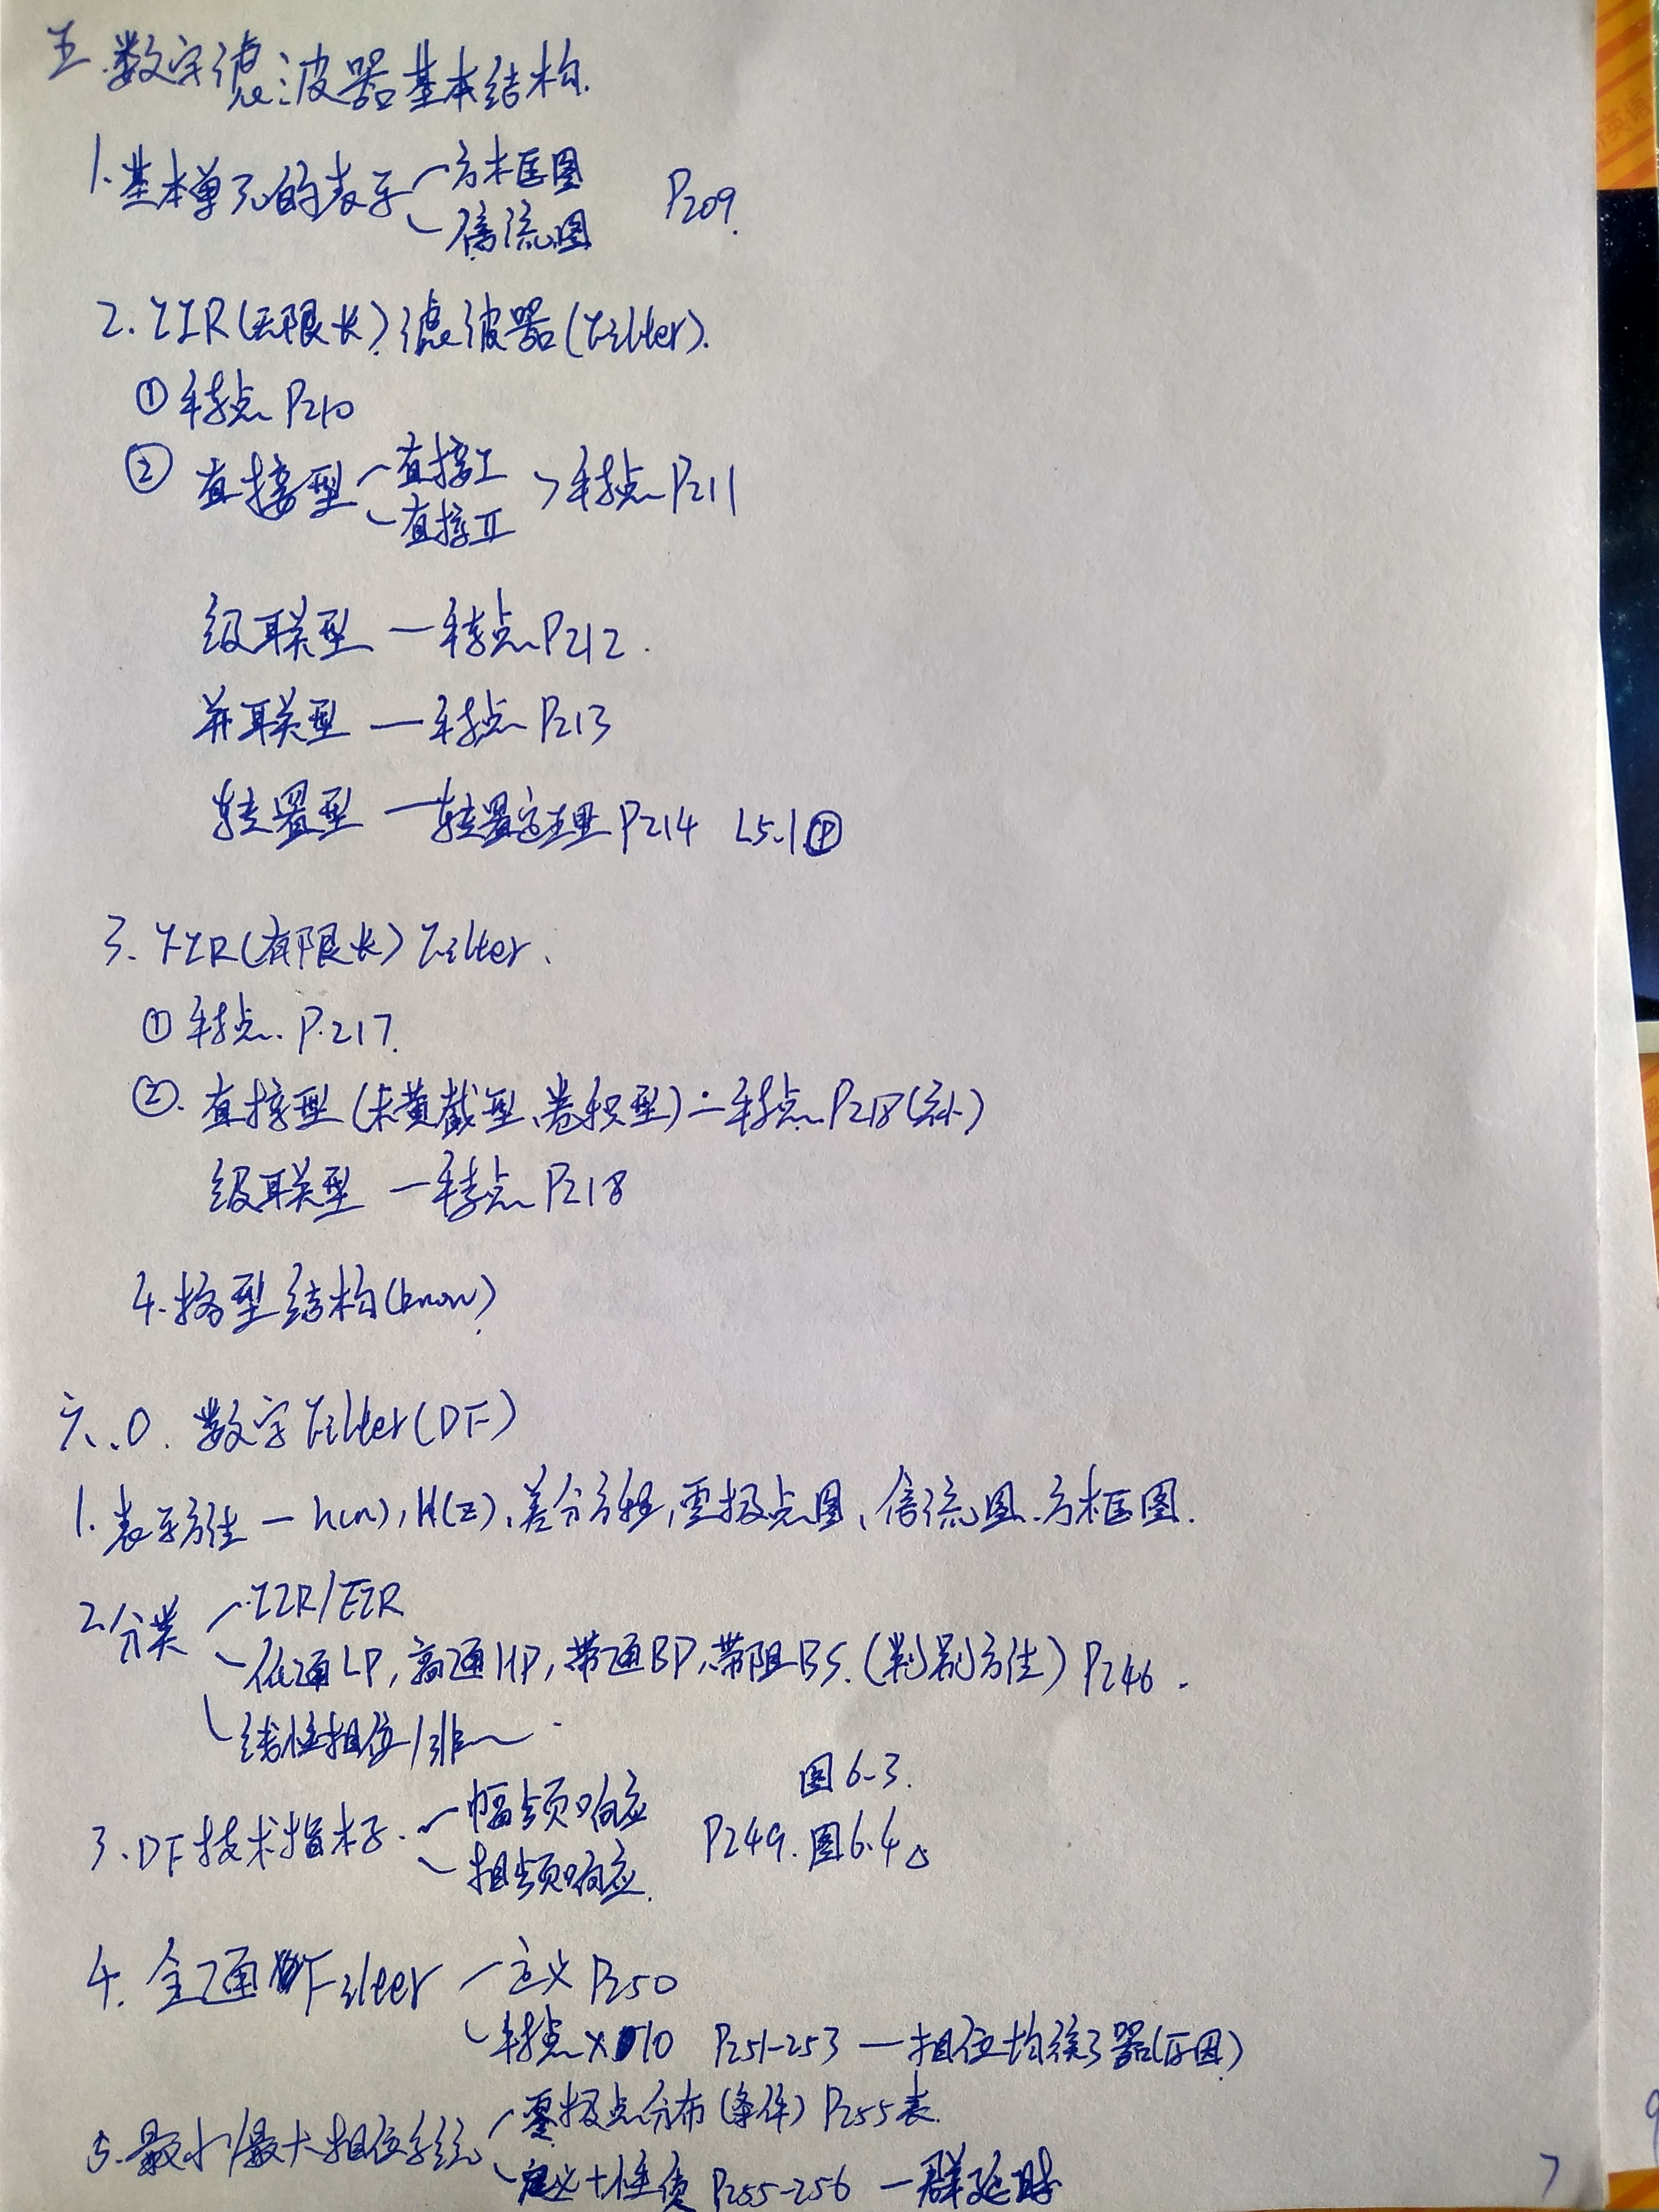 五.数字滤波器基本结构.
1.基本单元的表示 方框图 P209.
信流图
2.IIR(无限长)滤波器(Filter).
①特点P210
② 直接型 直接I >特点P211
直接II
级联型 — 特点P212.
并联型 — 特点P213
转置型 — 转置定理P214 L5.1④
3.FIR(有限长)Filter.
①特点.P.217.
②.直接型(横截型、卷积型) — 特点.P218(补)
级联型 — 特点P218
4.格型结构(know)
六.0.数字Filter(DF)
1.表示方法 — h(n),H(z)、差分方程,零极点图、信流图.方框图.
2.分类 IIR/FIR
低通LP,高通HP,带通BP,带阻BS.(判别方法)P246.
线性相位/非~
3.DF技术指标. 幅频响应 图6-3.
相频响应. P249.图6.4△
4.全通Filter 定义P250
特点×10 P251-253 — 相位均衡器(原因)
5.最小/最大相位系统 零极点分布(条件)P255表.
定义+性质P255-256 — 群延时
7